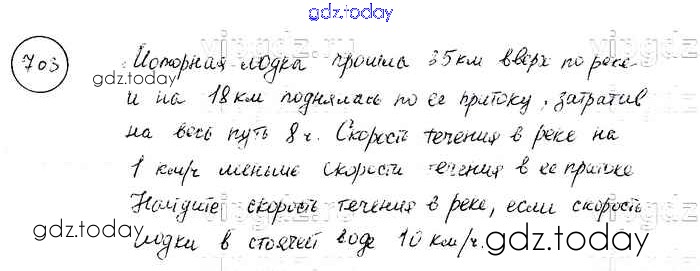 gdz.today
703 Моторная лодка прошла 35 км вверх по реке
gdz.today
и на 18 км поднялась по ее притоку, затратив
на весь путь 8 ч. Скорость течения в реке на
1 км/ч меньше скорости течения в ее притоке
Найдите скорость течения в реке, если скорость
gdz.today
лодки в стоячей воде 10 км/ч.
gdz.today